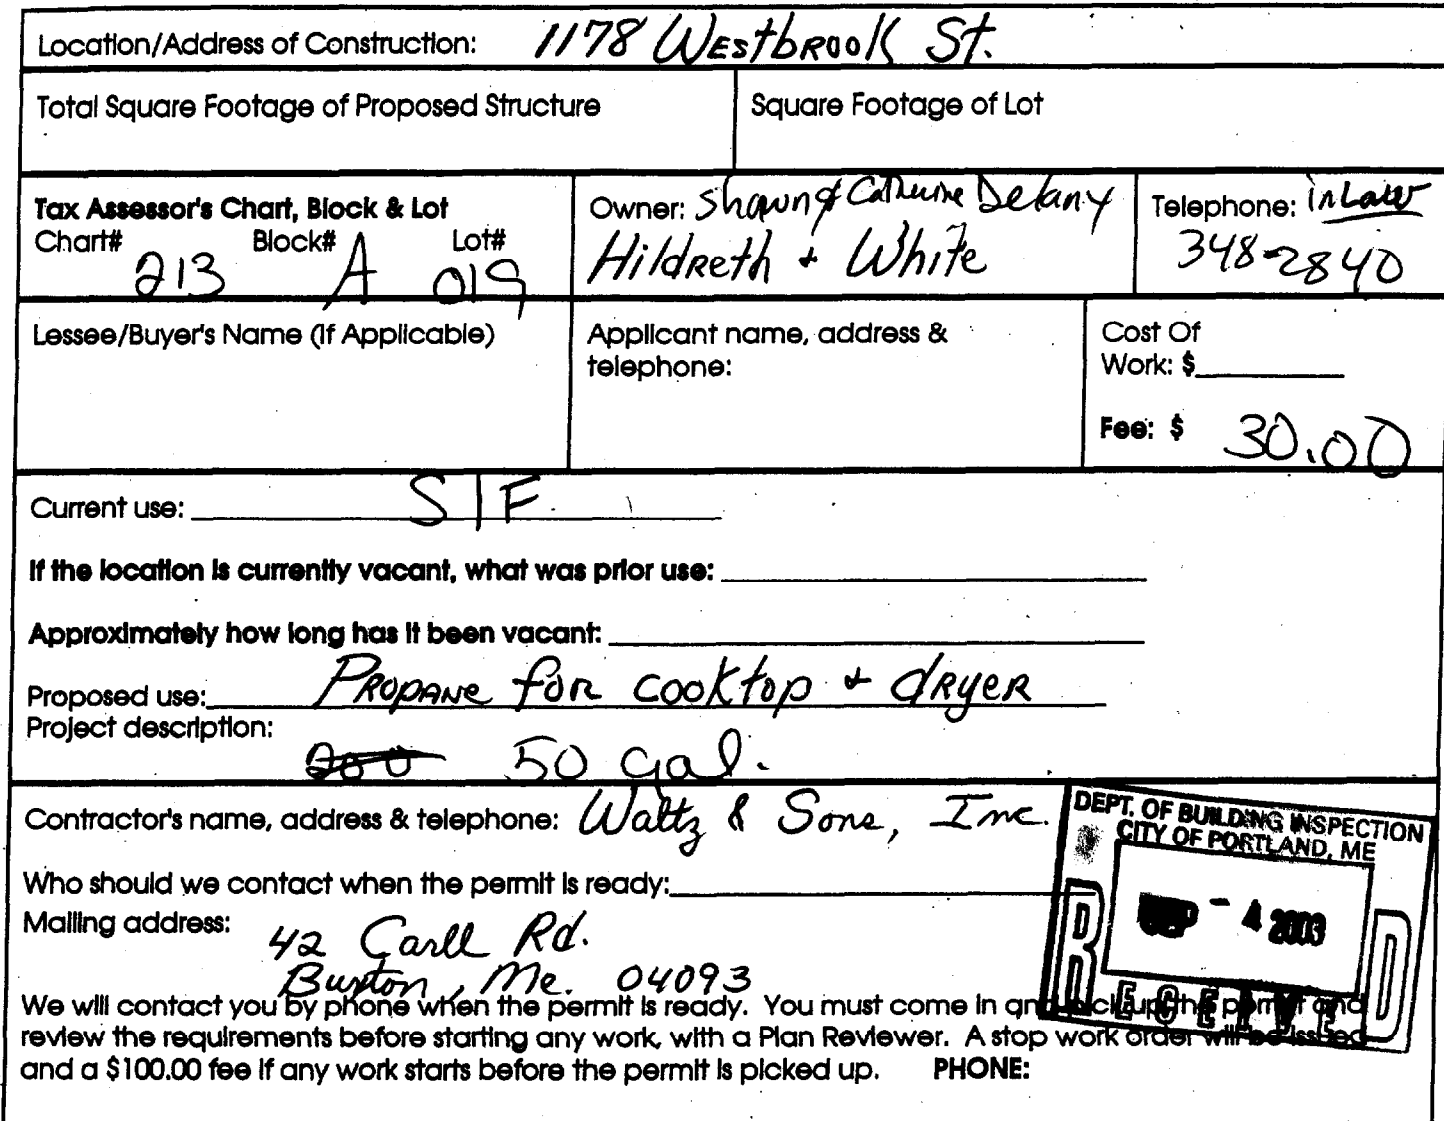 Location/Address of Construction: 1178 Westbrook St.
Total Square Footage of Proposed Structure
Square Footage of Lot
Tax Assessor's Chart, Block & Lot
Chart# Block# Lot#
213 A 019
Owner: Shawn & Catherine Delany
Hildreth + White
Telephone: in Law
348-2840
Lessee/Buyer's Name (If Applicable)
Applicant name, address &
telephone:
Cost Of
Work: $
Fee: $ 30.00
Current use: S/F
If the location is currently vacant, what was prior use:
Approximately how long has it been vacant:
Proposed use: Propane for cooktop + dryer
Project description:
200 50 gal.
Contractor's name, address & telephone: Waltz & Sons, Inc.
Who should we contact when the permit is ready:
Mailing address:
42 Carll Rd.
Buxton, Me. 04093
We will contact you by phone when the permit is ready. You must come in and pick up the permit and
review the requirements before starting any work, with a Plan Reviewer. A stop work order will be issued
and a $100.00 fee if any work starts before the permit is picked up. PHONE:
DEPT. OF BUILDING INSPECTION
CITY OF PORTLAND, ME
- 4 2003
RECEIVED